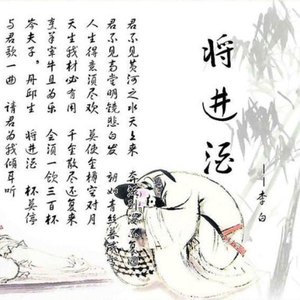 将进酒
——李白
君不见黄河之水天上来 奔
君不见高堂明镜悲白发 朝如青丝暮
人生得意须尽欢 莫使金樽空对月
天生我材必有用 千金散尽还复来
烹羊宰牛且为乐 会须一饮三百杯
岑夫子,丹邱生 将进酒 杯莫停
与君歌一曲 请君为我倾耳听